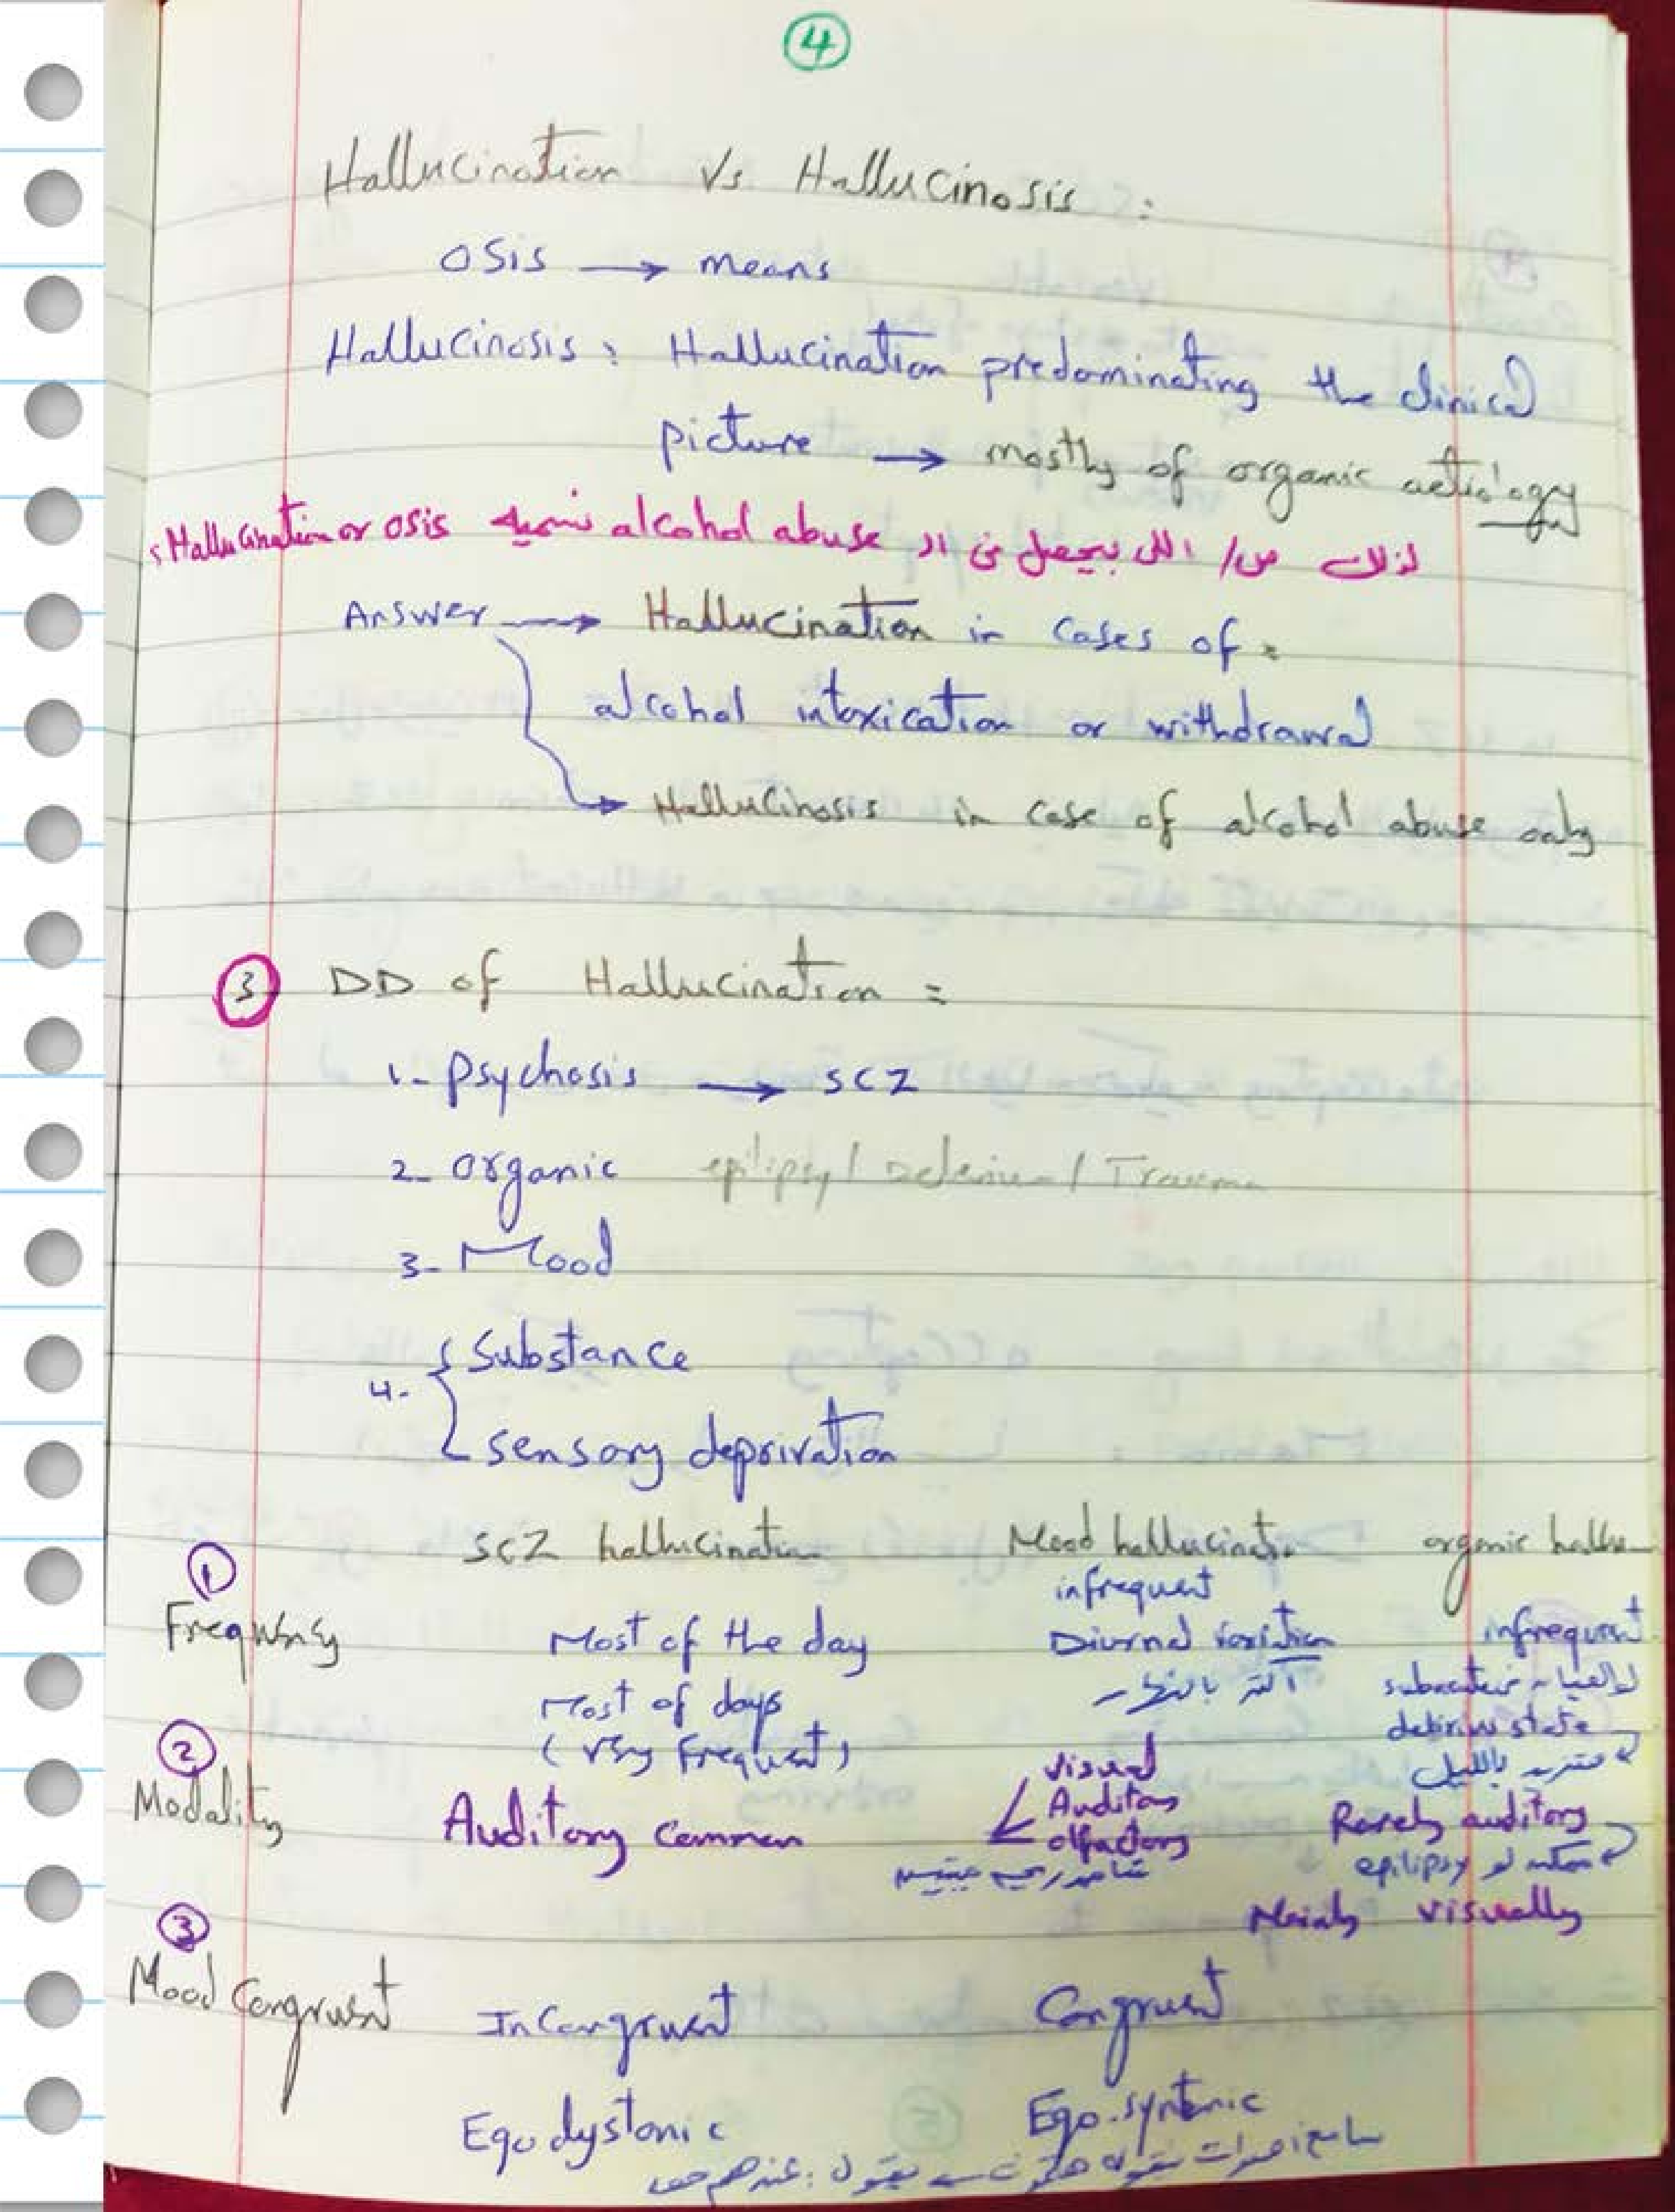 4
Hallucination Vs Hallucinosis :
OSis → means
Hallucinosis : Hallucination predominating the clinical
picture → mostly of organic aetiology
لذلك س/ اللى بيحصل فى ال alcohol abuse نسميه Hallucination or osis ؟
Answer → Hallucination in cases of :
alcohol intoxication or withdrawal
→ Hallucinosis in case of alcohol abuse only
3 DD of Hallucination :
1- Psychosis → SCZ
2- Organic epilipsy / Delerium / Trauma
3- Mood
4- { Substance
sensory deprivation
SCZ hallucination Mood hallucination organic hallu
1 Frequency
Most of the day
Most of days
(very Frequent)
infrequent
Diurnal variation
أكتر بالنهار
infrequent
state
بالليل
2 Modality
Auditory common
Visual
Auditory
olfactory
Rarely auditory
ممكن لو epilipsy
Mainly visually
3 Mood Congruent Incongruent Congruent
Ego dystonic Ego-syntonic
سامع أصوات بتقوله هتموت يقول : عندهم حق